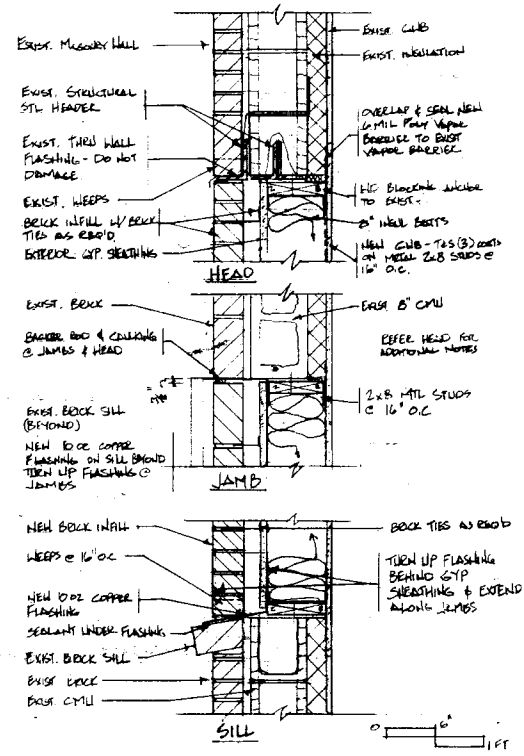 EXIST. MASONRY WALL
EXIST. STRUCTURAL
STL HEADER
EXIST. THRU WALL
FLASHING - DO NOT
DAMAGE
EXIST. WEEPS
BRICK INFILL W/ BRICK
TIES AS REQ'D
EXTERIOR GYP. SHEATHING
HEAD
EXIST. GWB
EXIST. INSULATION
OVERLAP & SEAL NEW
6 MIL POLY VAPOR
BARRIER TO EXIST
VAPOR BARRIER
BLOCKING ANCHOR
TO EXIST.
8" INSUL BATTS
NEW GWB - T&S (3) COATS
ON METAL 2x8 STUDS @
16" O.C.
EXIST. BRICK
BACKER ROD & CAULKING
@ JAMBS & HEAD
EXIST. BRICK SILL
(BEYOND)
NEW 10 OZ COPPER
FLASHING ON SILL BEYOND
TURN UP FLASHING @
JAMBS
JAMB
EXIST 8" CMU
REFER HEAD FOR
ADDITIONAL NOTES
2x8 MTL STUDS
@ 16" O.C
NEW BRICK INFILL
WEEPS @ 16" O.C
NEW 10 OZ COPPER
FLASHING
SEALANT UNDER FLASHING
EXIST. BRICK SILL
EXIST BRICK
EXIST. CMU
SILL
BRICK TIES AS REQ'D
TURN UP FLASHING
BEHIND GYP
SHEATHING & EXTEND
ALONG JAMBS
0 6"
1 FT